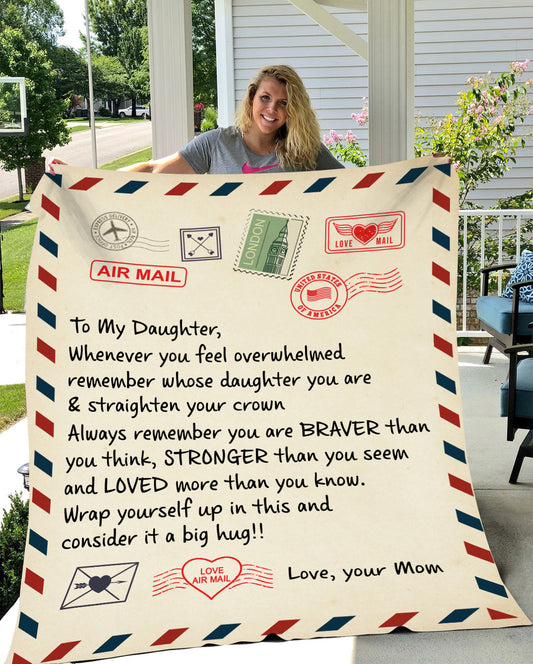 EXPRESS DELIVERY
LONDON
LOVE MAIL
AIR MAIL
UNITED STATES
OF AMERICA
To My Daughter,
Whenever you feel overwhelmed
remember whose daughter you are
& straighten your crown
Always remember you are BRAVER than
you think, STRONGER than you seem
and LOVED more than you know.
Wrap yourself up in this and
consider it a big hug!!
LOVE
AIR MAIL
Love, your Mom